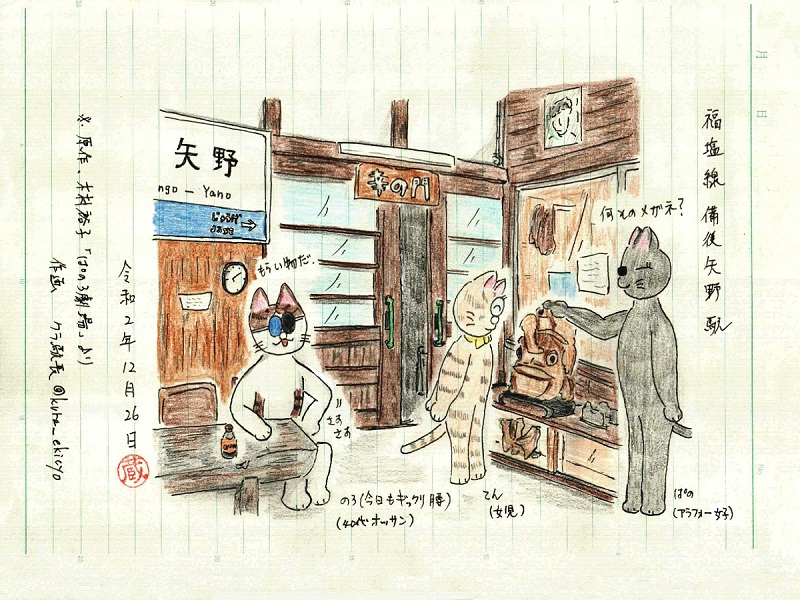 福塩線 備後矢野駅
何そのメガネ?
幸の門
矢野
ngo - Yano
じょうげ
もらい物だ。
さす
さす
のろ(今日もギックリ腰)
(40代オッサン)
てん
(女児)
ぱの
(アラフォー女子)
令和2年12月26日
蔵
※原作、木村裕子「ぱのろ劇場」より
作画 クラ駅長@kura_ekicyo
月 日